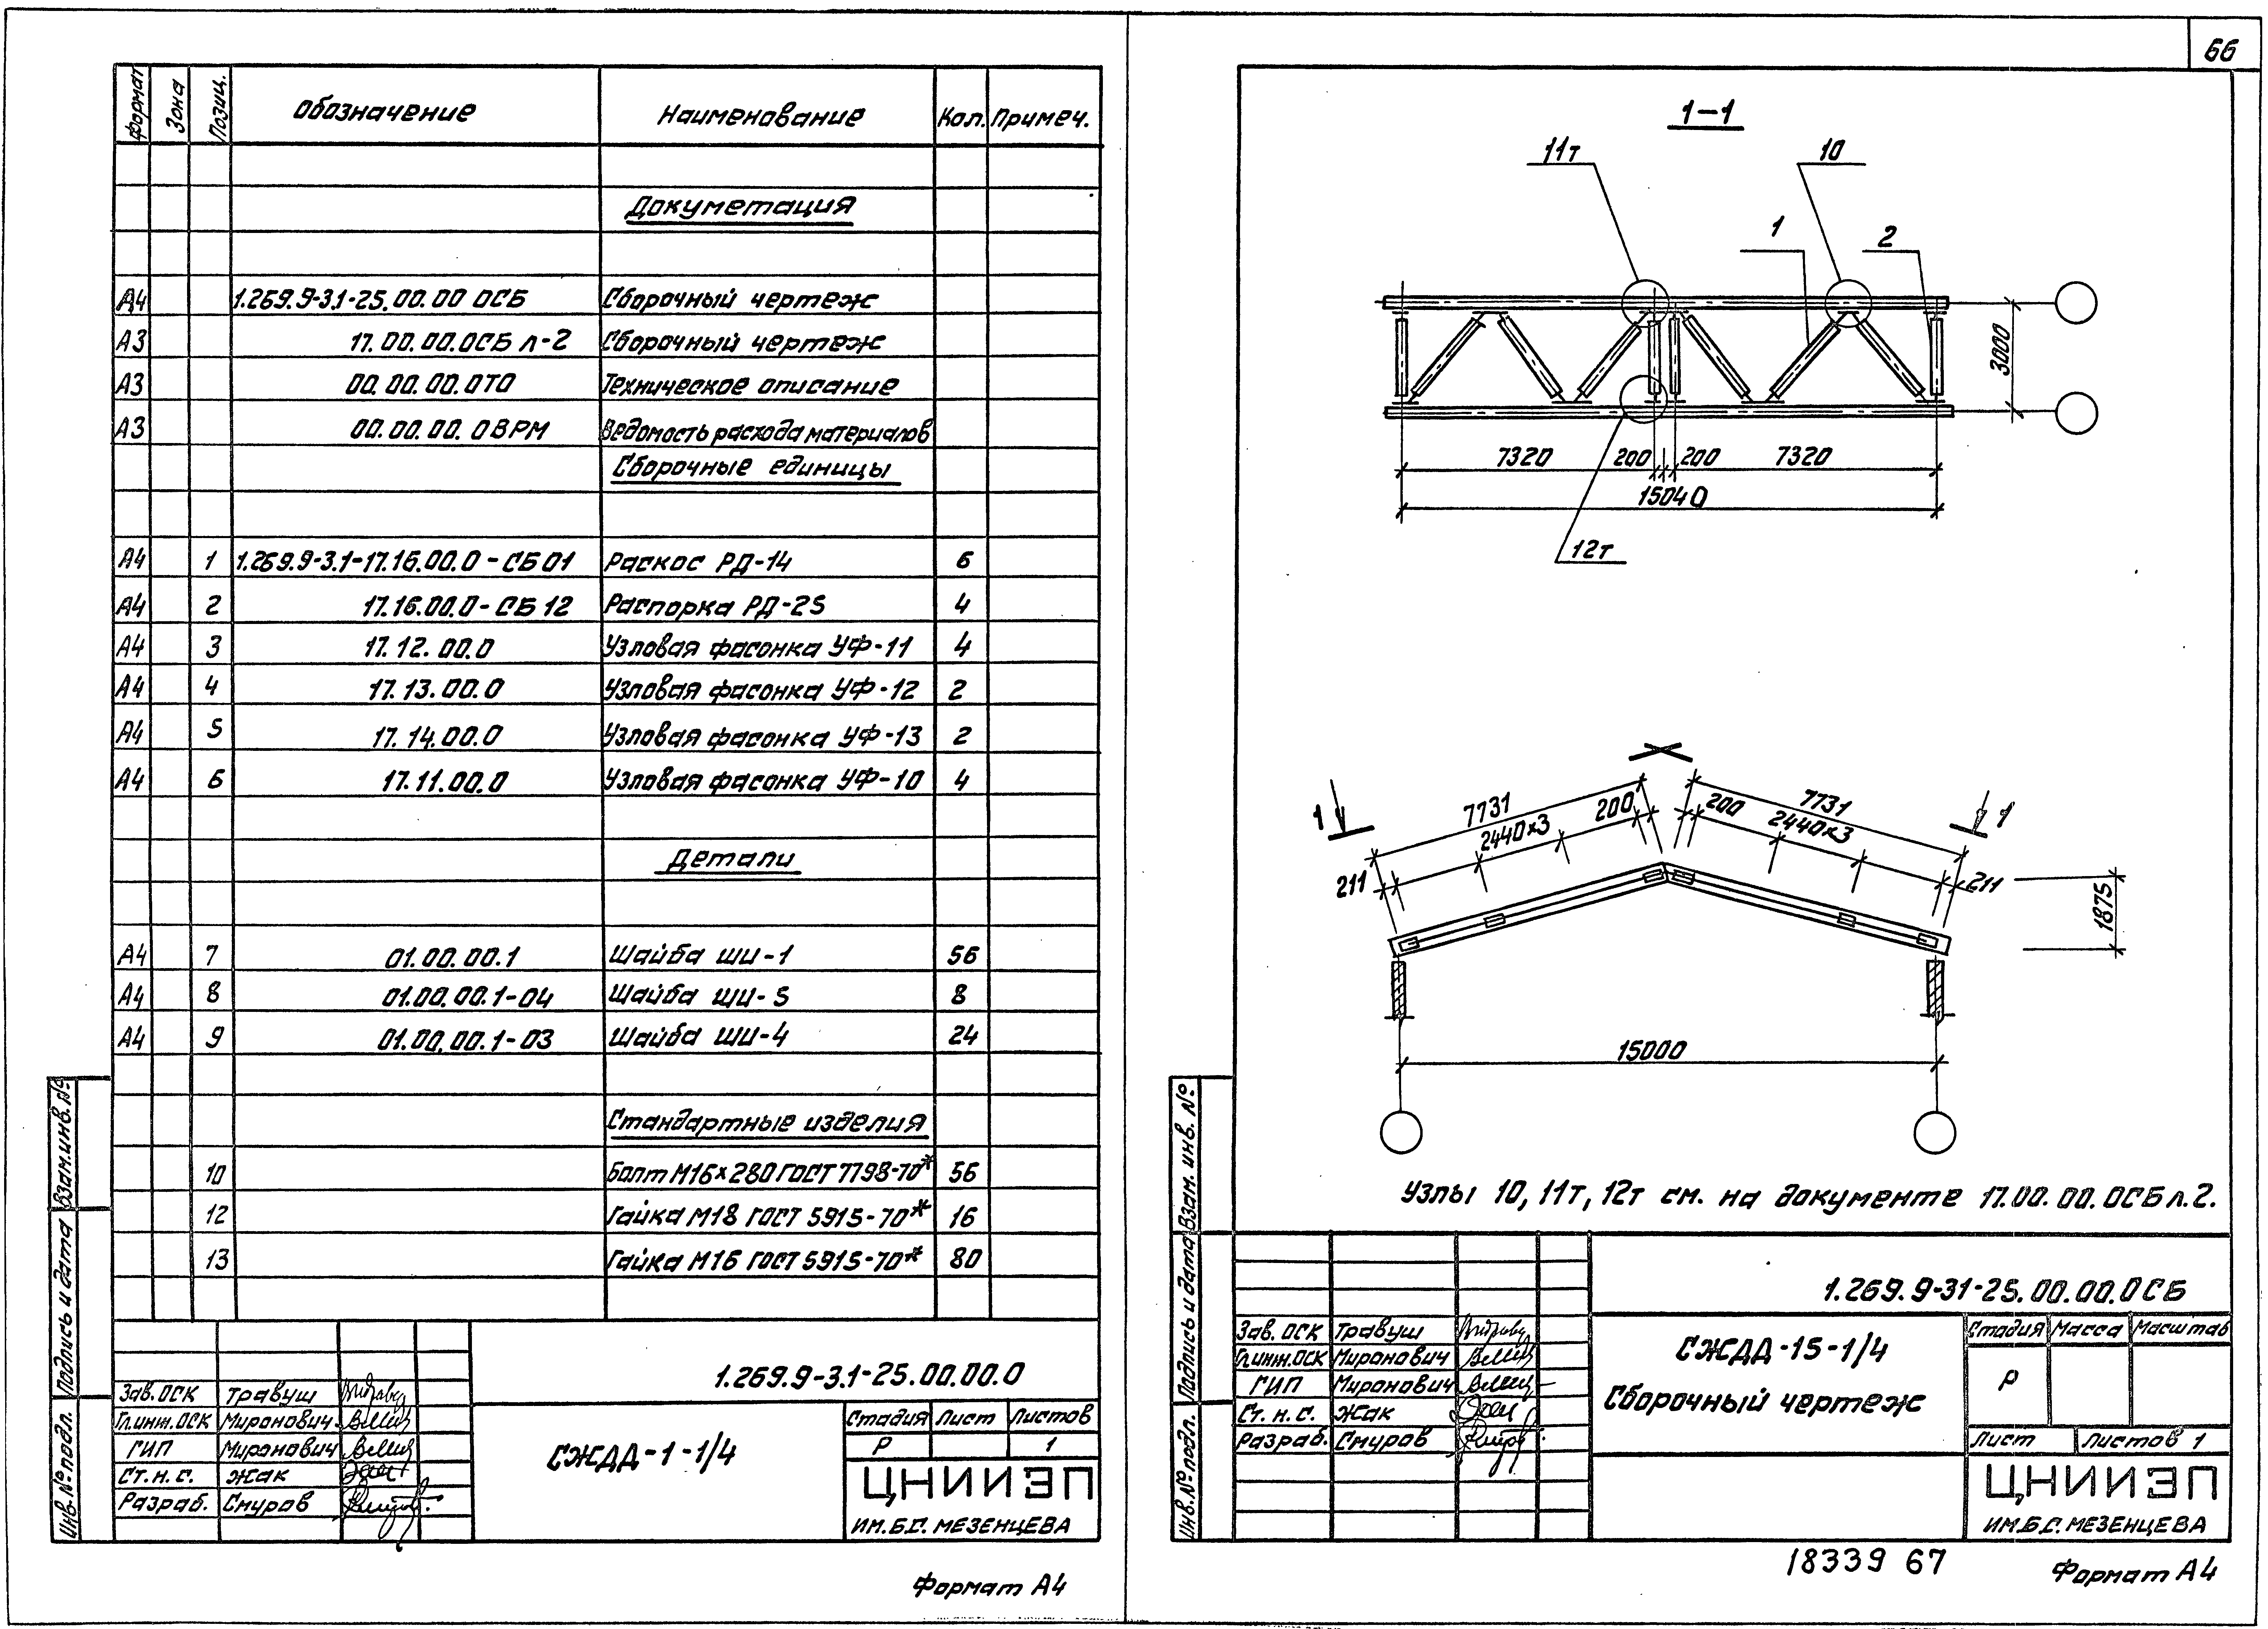 66
Формат Зона Позиц. Обозначение Наименование Кол. Примеч.
Документация
А4 1.269.9-3.1-25.00.00 0СБ Сборочный чертеж
А3 17.00.00.0СБ л-2 Сборочный чертеж
А3 00.00.00.0ТО Техническое описание
А3 00.00.00.0ВРМ Ведомость расхода материалов
Сборочные единицы
А4 1 1.269.9-3.1-17.16.00.0-СБ01 Раскос РД-14 6
А4 2 17.16.00.0-СБ 12 Распорка РД-25 4
А4 3 17.12.00.0 Узловая фасонка УФ-11 4
А4 4 17.13.00.0 Узловая фасонка УФ-12 2
А4 5 17.14.00.0 Узловая фасонка УФ-13 2
А4 6 17.11.00.0 Узловая фасонка УФ-10 4
Детали
А4 7 01.00.00.1 Шайба ШИ-1 56
А4 8 01.00.00.1-04 Шайба ШИ-5 8
А4 9 01.00.00.1-03 Шайба ШИ-4 24
Стандартные изделия
10 Болт М16×280 ГОСТ 7798-70* 56
12 Гайка М18 ГОСТ 5915-70* 16
13 Гайка М16 ГОСТ 5915-70* 80
Взам.инв.№
Подпись и дата
Инв.№ подл.
1.269.9-3.1-25.00.00.0
Зав.ОСК Травуш
Гл.инж.ОСК Миронович
ГИП Миронович
Ст.н.с. Жак
Разраб. Смуров
СЖДД-1-1/4
Стадия Лист Листов
Р 1
ЦНИИЭП
ИМ.Б.С. МЕЗЕНЦЕВА
Формат А4
1-1
11т 10
1 2
3000
7320 200 200 7320
15040
12т
1 7731 2440×3 200 200 7731 2440×3 1
211 211
1875
15000
Узлы 10, 11т, 12т см. на документе 17.00.00.0СБ л.2.
Взам. инв. №
Подпись и дата
Инв.№ подл.
1.269.9-31-25.00.00.0СБ
Зав. ОСК Травуш
Гл.инж.ОСК Миронович
ГИП Миронович
Ст. н. с. Жак
Разраб. Смуров
СЖДД-15-1/4
Сборочный чертеж
Стадия Масса Масштаб
Р
Лист Листов 1
ЦНИИЭП
ИМ.Б.С. МЕЗЕНЦЕВА
18339 67
Формат А4